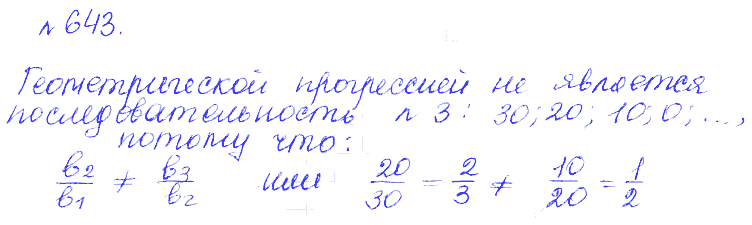 № 643.
Геометрической прогрессией не является
последовательность № 3: 30; 20; 10; 0; ...,
потому что:
b₂/b₁ ≠ b₃/b₂ или 20/30 = 2/3 ≠ 10/20 = 1/2